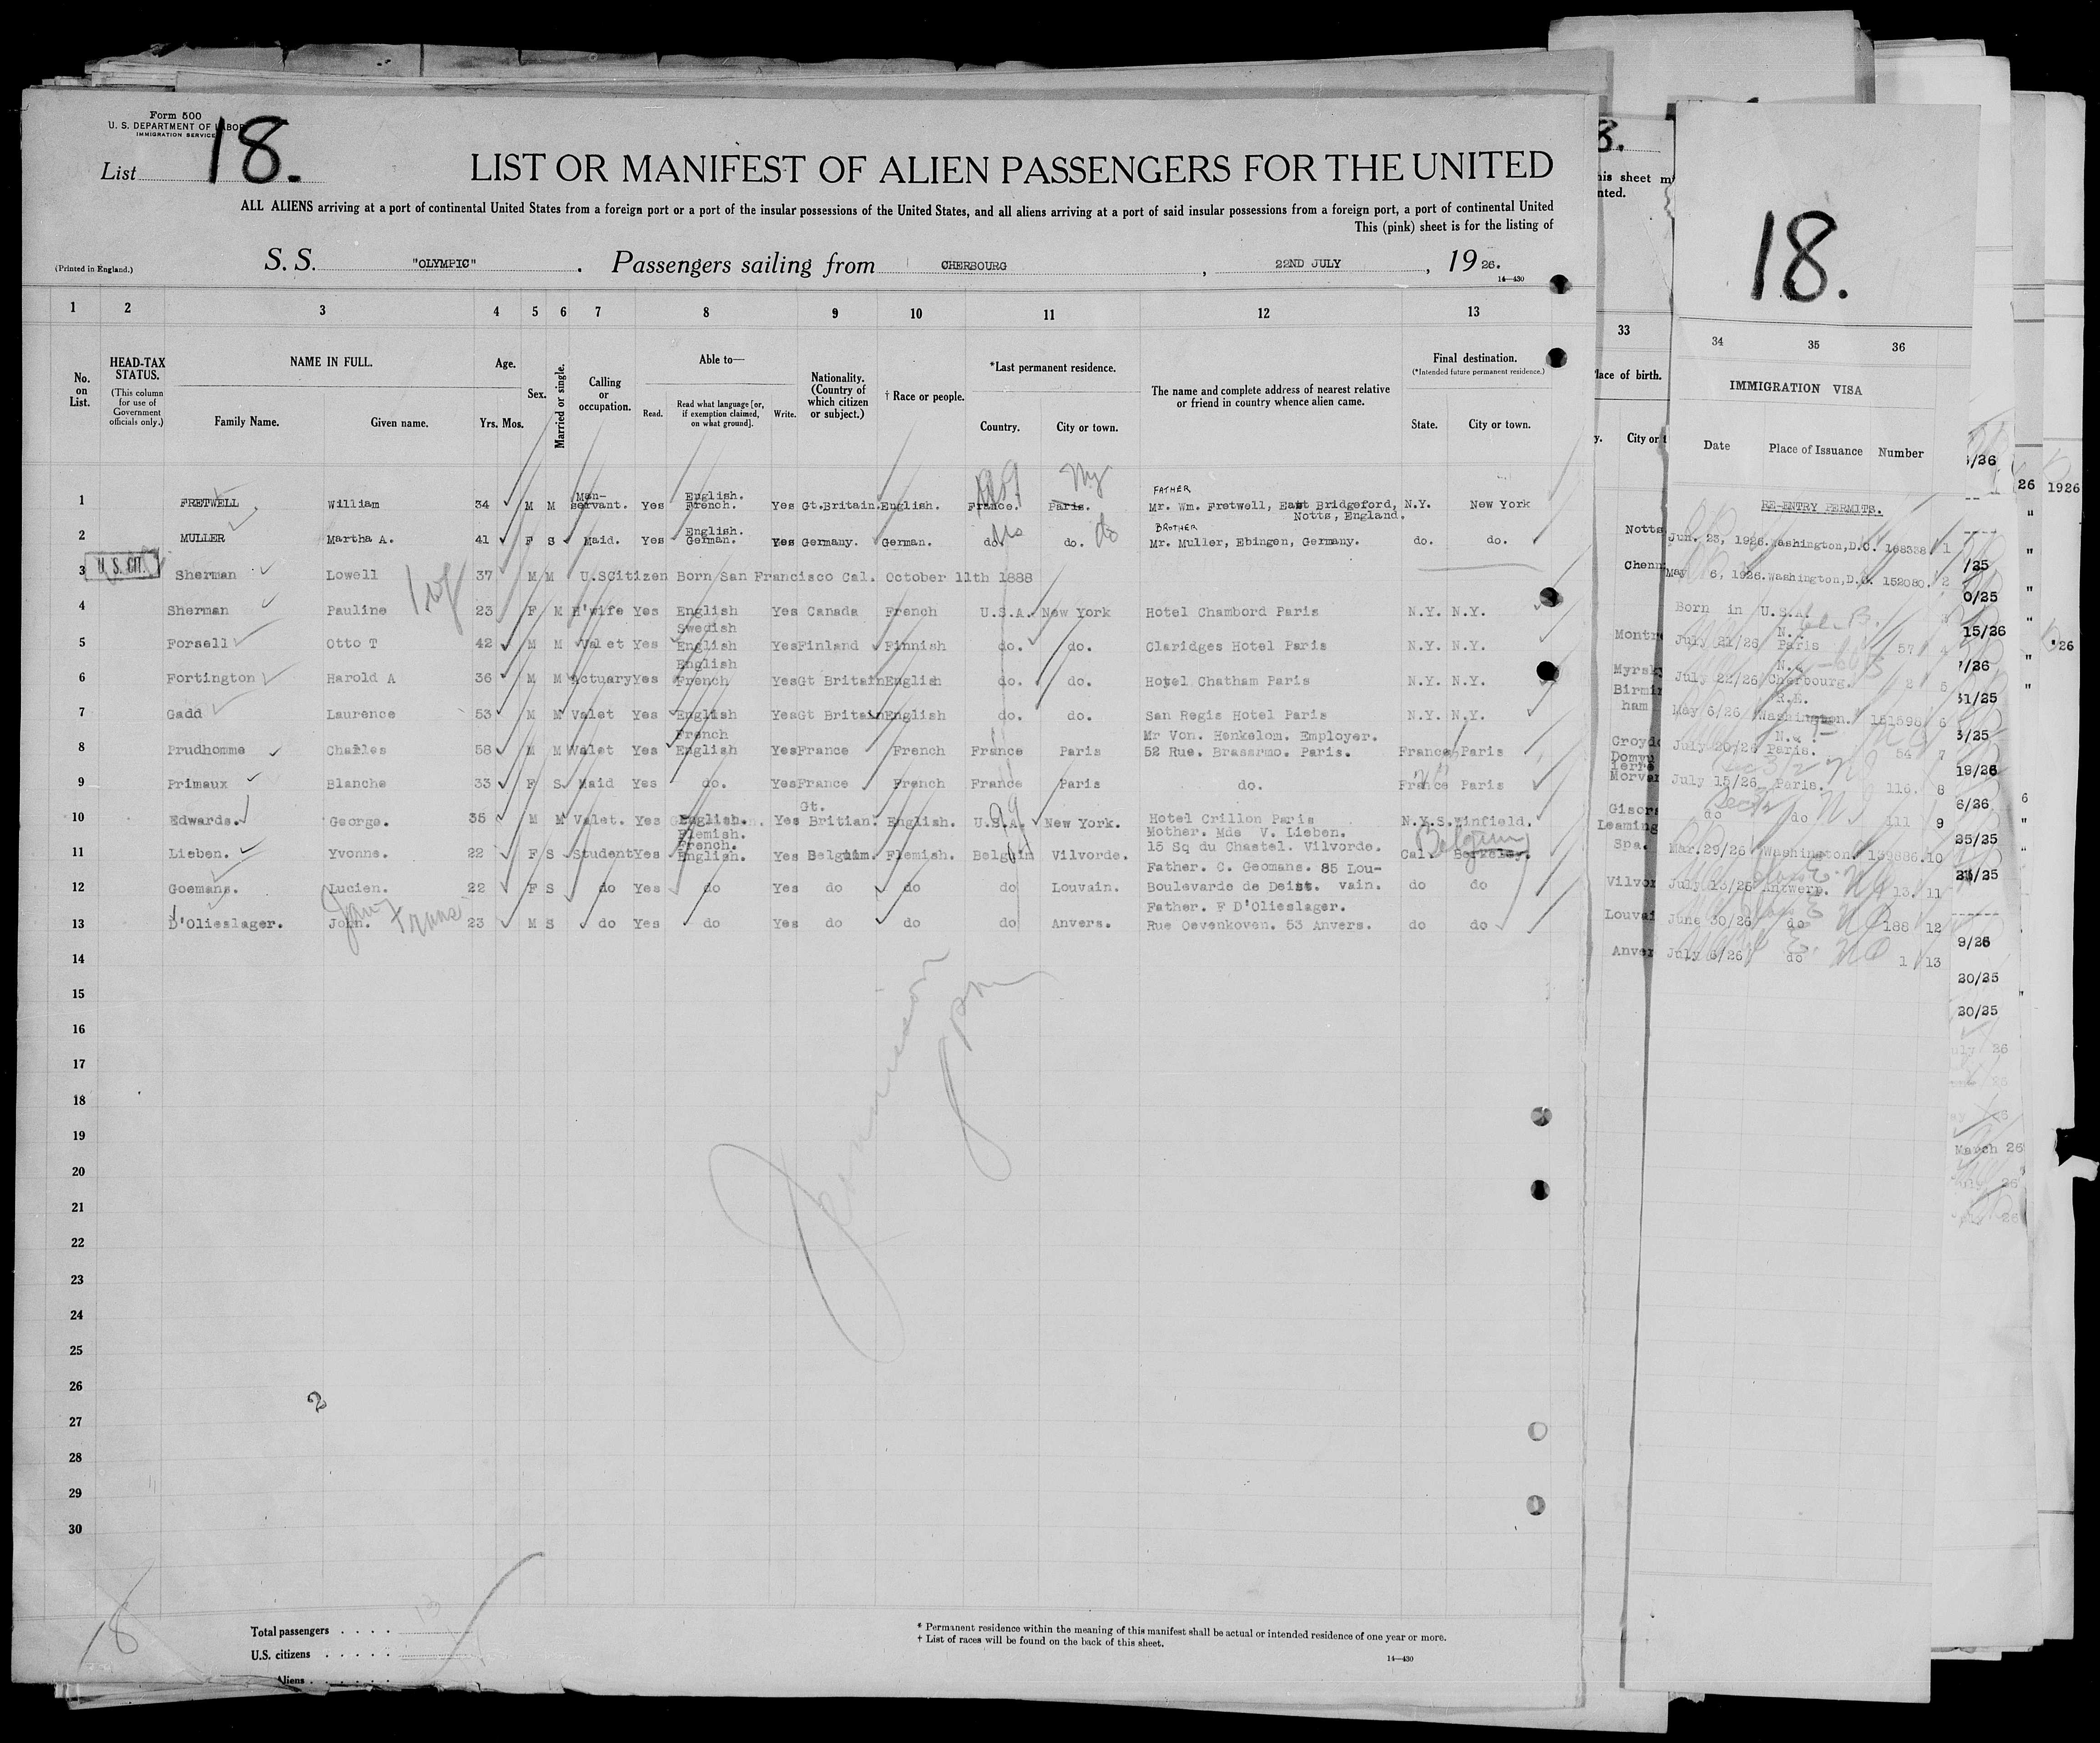 Form 500
U. S. DEPARTMENT OF LABOR
IMMIGRATION SERVICE
List 18.
LIST OR MANIFEST OF ALIEN PASSENGERS FOR THE UNITED
ALL ALIENS arriving at a port of continental United States from a foreign port or a port of the insular possessions of the United States, and all aliens arriving at a port of said insular possessions from a foreign port, a port of continental United
This (pink) sheet is for the listing of
(Printed in England.)
S. S. "OLYMPIC" . Passengers sailing from CHERBOURG , 22ND JULY , 19 26.
14—430
1 2 3 4 5 6 7 8 9 10 11 12 13
No. on List.
HEAD-TAX STATUS.
(This column for use of Government officials only.)
NAME IN FULL.
Family Name. Given name.
Age.
Yrs. Mos.
Sex.
Married or single.
Calling or occupation.
Able to—
Read. Read what language [or, if exemption claimed, on what ground]. Write.
Nationality. (Country of which citizen or subject.)
† Race or people.
*Last permanent residence.
Country. City or town.
The name and complete address of nearest relative or friend in country whence alien came.
Final destination.
(*Intended future permanent residence.)
State. City or town.
1 FRETWELL William 34 M M Man-servant. Yes English. French. Yes Gt.Britain. English. France. Paris. FATHER Mr. Wm. Fretwell, East Bridgeford, Notts, England. N.Y. New York
2 MULLER Martha A. 41 F S Maid. Yes English. German. Yes Germany. German. do. do. BROTHER Mr. Muller, Ebingen, Germany. do. do.
U. S. CIT.
3 Sherman Lowell 37 M M U.SCitizen Born San Francisco Cal. October 11th 1888
4 Sherman Pauline 23 F M H'wife Yes English Yes Canada French U.S.A. New York Hotel Chambord Paris N.Y. N.Y.
5 Forsell Otto T 42 M M Valet Yes Swedish English Yes Finland Finnish do. do. Claridges Hotel Paris N.Y. N.Y.
6 Fortington Harold A 36 M M Actuary Yes English French Yes Gt Britain English do. do. Hotel Chatham Paris N.Y. N.Y.
7 Gadd Laurence 53 M M Valet Yes English Yes Gt Britain English do. do. San Regis Hotel Paris N.Y. N.Y.
8 Prudhomme Charles 58 M M Valet Yes French English Yes France French France Paris Mr Von. Henkelom. Employer. 52 Rue. Brassrmo. Paris. France Paris
9 Primaux Blanche 33 F S Maid Yes do. Yes France French France Paris do. France Paris
10 Edwards. George. 35 M M Valet. Yes English. Yes Gt. Britian. English. U.S.A. New York. Hotel Crillon Paris N.Y. S.Winfield.
11 Lieben. Yvonne. 22 F S Student Yes Flemish. French. English. Yes Belgium. Flemish. Belguim Vilvorde. Mother. Mde V. Lieben. 15 Sq du Chastel. Vilvorde. Cal. Berkeley. Belgium
12 Goemans. Lucien. 22 F S do Yes do Yes do do do Louvain. Father. C. Geomans. 85 Lou- Boulevarde de Deist. vain. do do
13 D'Olieslager. John. 23 M S do Yes do Yes do do do Anvers. Father. F D'Olieslager. Rue Oevenkoven. 53 Anvers. do do
14
15
16
17
18
19
20
21
22
23
24
25
26
27
28
29
30
2
18
Total passengers . . . .
U.S. citizens . . . . .
Aliens . . . . . .
* Permanent residence within the meaning of this manifest shall be actual or intended residence of one year or more.
† List of races will be found on the back of this sheet.
14—430
his sheet m
nted.
33
lace of birth.
y. City or t
Notts
Chenn
Montre
Myrsky
Birmin
ham
Croydo
Domvu
Terre
Morvan
Gisors
Leaming
Spa.
Vilvor
Louvai
Anver
18.
34 35 36
IMMIGRATION VISA
Date Place of Issuance Number
RE-ENTRY PERMITS.
Jun. 23, 1926. Washington,D.C. 168338 1
May 6, 1926. Washington,D.C. 152080. 2
Born in U.S.A. 3
July 21/26 Paris 57 4
July 22/26 Cherbourg. 2 5
R.E.
May 6/26 Washington. 151598 6
July 20/26 Paris. 54 7
July 15/26 Paris. 116. 8
do do 111 9
Mar.29/26 Washington. 139886. 10
July 13/26 Antwerp. 13. 11
June 30/26 do 188 12
July 6/26 do 1 13
/26
/25
0/25
15/26
/26
31/25
19/26
6/26
9/26
30/25
March 26
26
1926